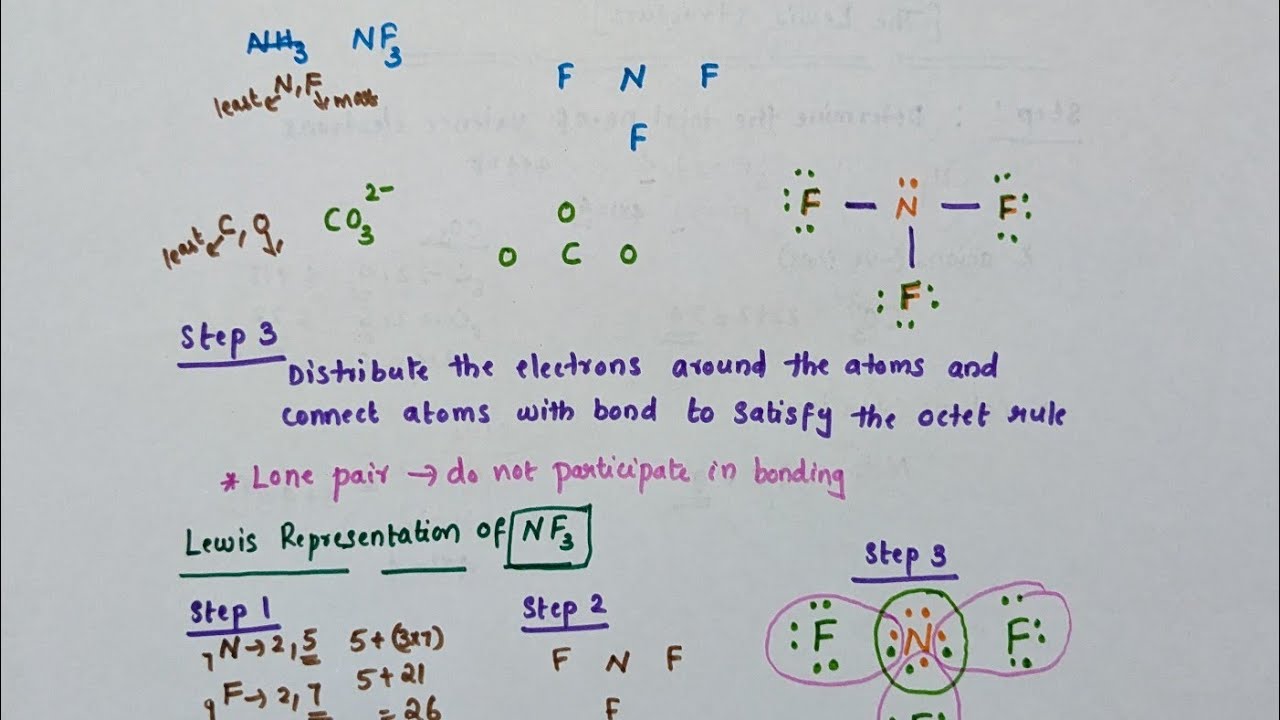 NH3 NF3
least ← N, F → most
F N F
F
least ← C, O
CO3 2-
O
O C O
F — N — F
F
Step 3
Distribute the electrons around the atoms and
connect atoms with bond to satisfy the octet rule
* Lone pair → do not participate in bonding
Lewis Representation of NF3
Step 1
7N → 2, 5 5 + (3x7)
9F → 2, 7 5 + 21
= 26
Step 2
F N F
F
Step 3
F N F
F